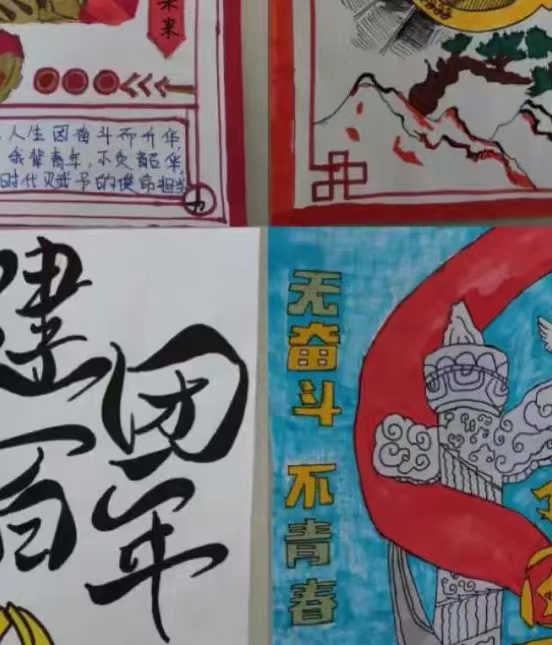 未来
人生因奋斗而升华,
我辈青年,不负韶华,
时代赋予的使命担当
建团
百年
无奋斗 不青春